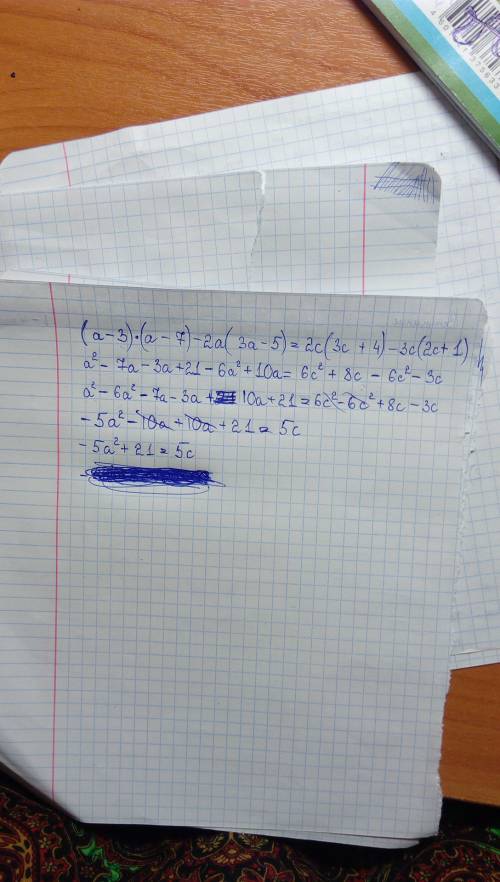 (a-3)·(a-7)-2a(3a-5)=2c(3c+4)-3c(2c+1)
a²-7a-3a+21-6a²+10a=6c²+8c-6c²-3c
a²-6a²-7a-3a+10a+21=6c²-6c²+8c-3c
-5a²-10a+10a+21=5c
-5a²+21=5c